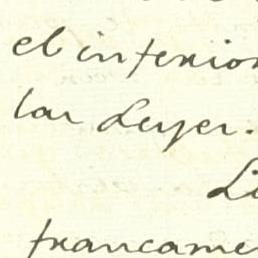 el inferior
las Leyes.
Li
francame